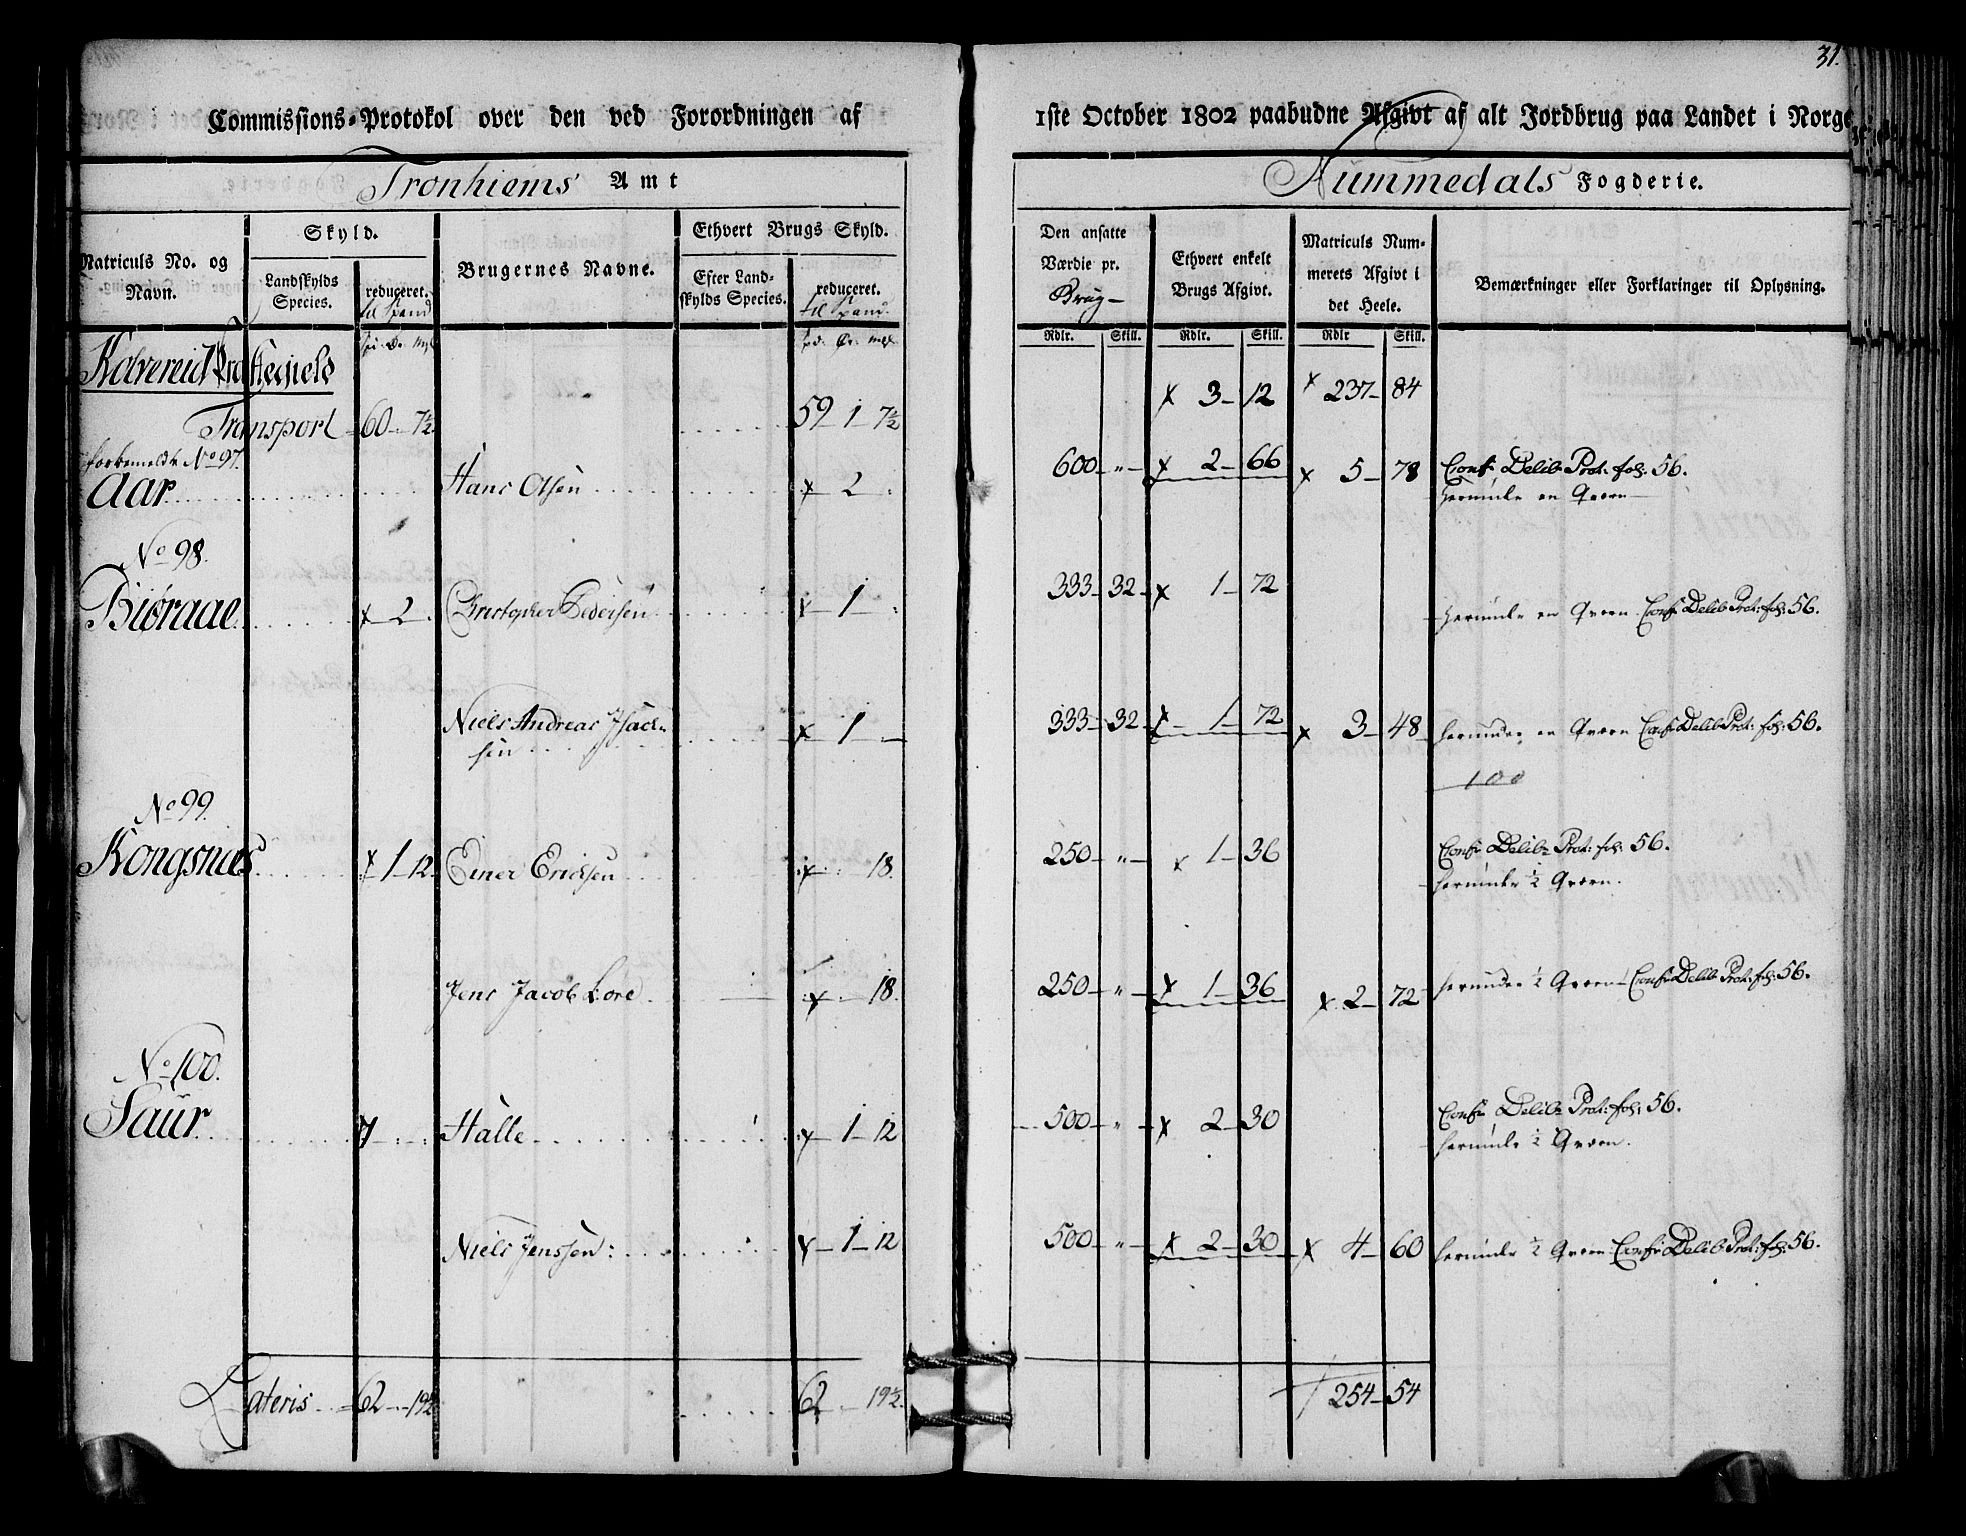 31.
Commissions-Protokol over den ved Forordningen af 1ste October 1802 paabudne Afgivt af alt Jordbrug paa Landet i Norge
Tronhiems Amt Nummedals Fogderie.
Matriculs No. og Navn.
Skyld.
Landskylds Species.
reduceret.
til Spand
Brugernes Navne.
Ethvert Brugs Skyld.
Efter Landskylds Species.
reduceret.
til Spand.
Den ansatte Værdie pr. Brug
Ethvert enkelt Brugs Afgivt.
Matriculs Nummerets Afgivt i det Heele.
Bemærkninger eller Forklaringer til Oplysning.
Rdlr. Skill. Rdlr. Skill. Rdlr Skill.
Kolvereid
x 3 - 12 x 237 - 84
Transport 60 - 7½ 59 - 1 - 7½
No 97.
Aar Hans Olsen x 2 600 - " - x 2 - 66 x 5 - 78 Conf: Delib: Prot: fol: 56.
herunder en Qværn
No 98.
Biøraae x 2. Christopher Pedersen x 1 333 - 32 x 1 - 72 herunder en Qværn Conf: Delib: Prot: fol: 56.
Niels Andreas Isach-
sen x 1 333 - 32 x 1 - 72 x 3 - 48 herunder en Qværn Conf: Delib: Prot: fol: 56.
100
No 99.
Kongsnæs x 1 - 12. Einer Ericksen x 18. 250 - " - x 1 - 36 Conf: Delib: Prot: fol: 56.
herunder ½ Qværn.
Jens Jacob Lore x 18. 250 - " - x 1 - 36 x 2 - 72 herunder ½ Qværn Conf: Delib: Prot: fol: 56.
No 100.
Saur Halle x 1 - 12 500 - " - x 2 - 30 Conf: Delib: Prot: fol: 56.
herunder ½ Qværn.
Niels Jenssen: x 1 - 12 500 - " - x 2 - 30 x 4 - 60 herunder ½ Qværn Conf: Delib: Prot: fol: 56.
Lateris 62 - 19½ 62 - 19½ 254 - 54